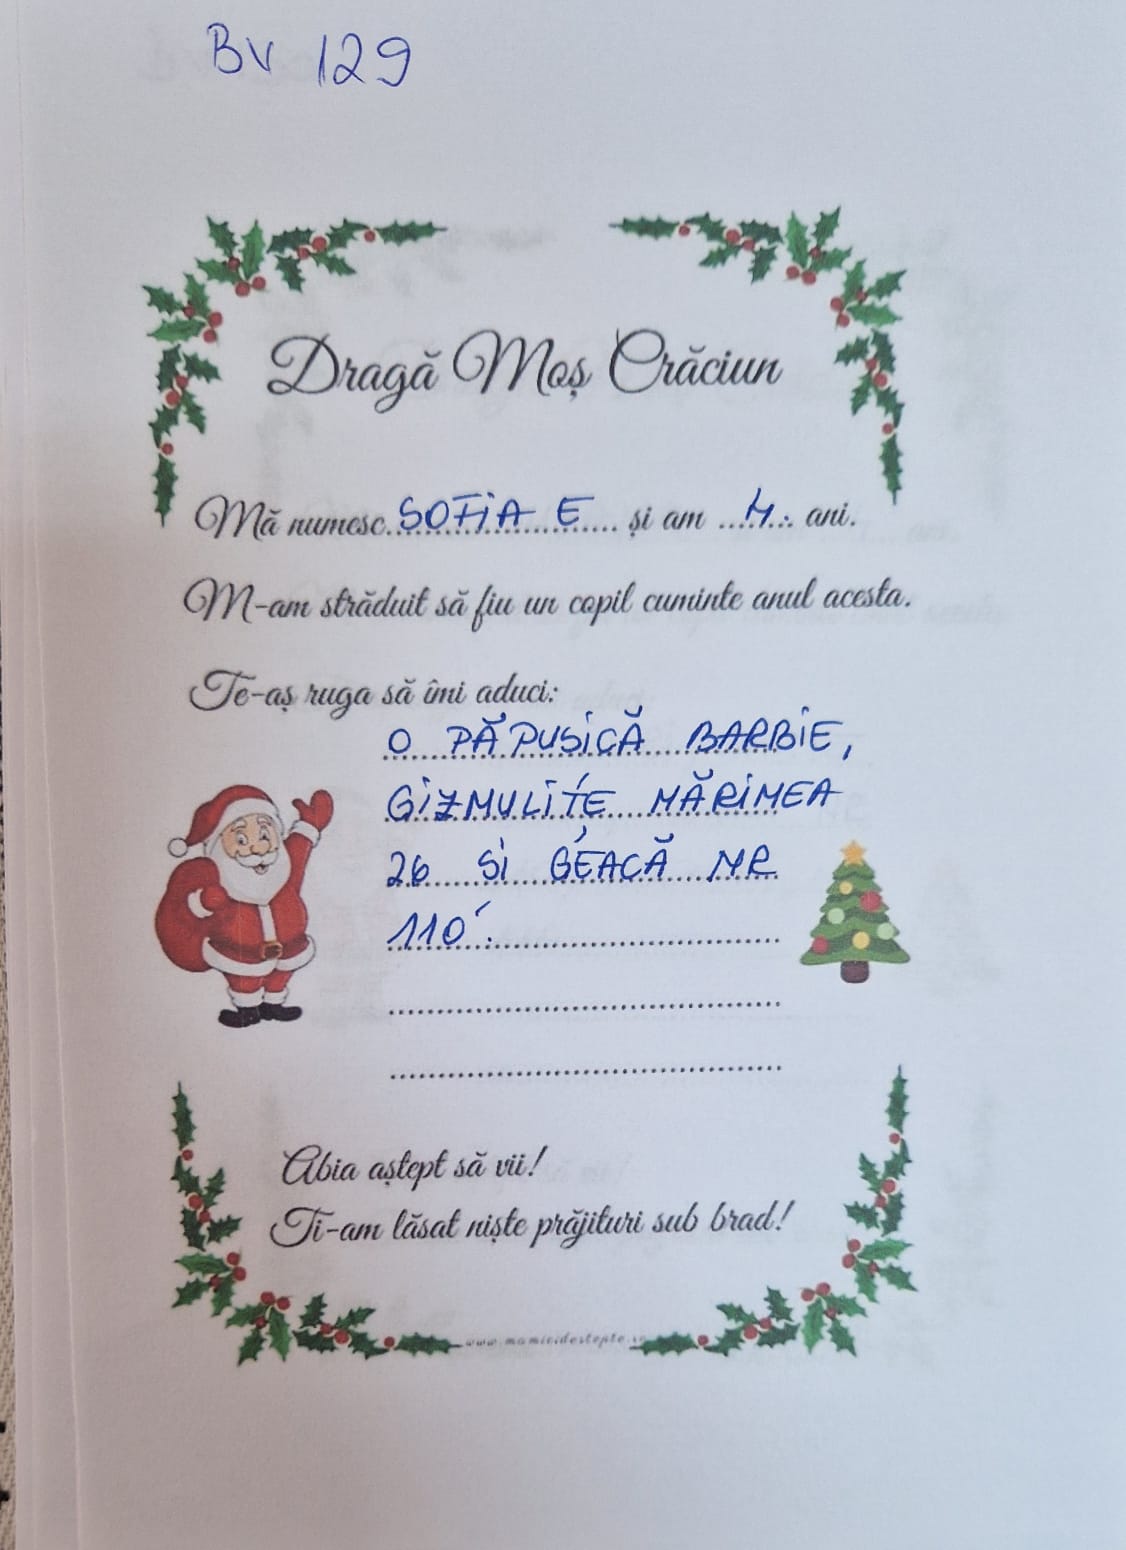 BV 129
Dragă Moș Crăciun
Mă numesc SOFIA E și am 4 ani.
M-am străduit să fiu un copil cuminte anul acesta.
Te-aș ruga să îmi aduci:
O PĂPUSICĂ BARBIE,
GIZMULIȚE MĂRIMEA
26 SI GEACĂ NR
110.
Abia aștept să vii!
Ti-am lăsat niște prăjituri sub brad!
www.mamicidestepte.ro